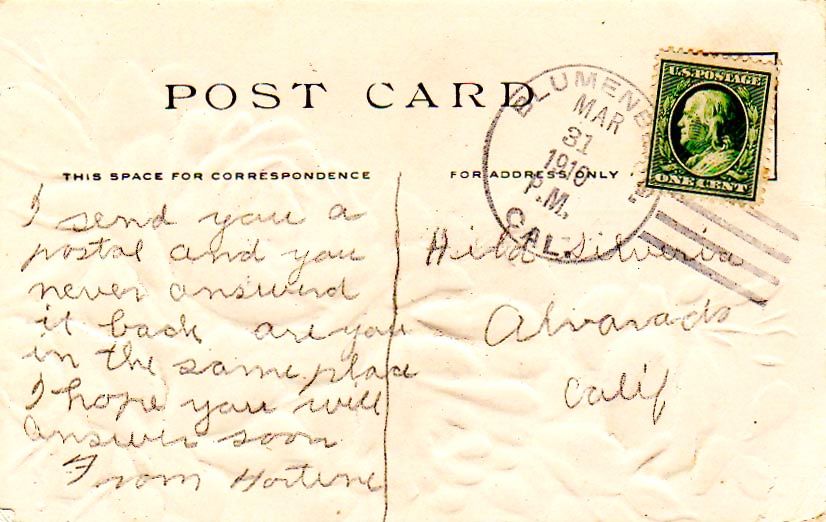 POST CARD
THIS SPACE FOR CORRESPONDENCE
FOR ADDRESS ONLY
U.S. POSTAGE
ONE CENT
MAR
31
1910
P.M.
CAL.
I send you a
postal and you
never answerd
it back are you
in the same place
I hope you will
answer soon
From Hortene
Hild Silveria
Alvarado
Calif